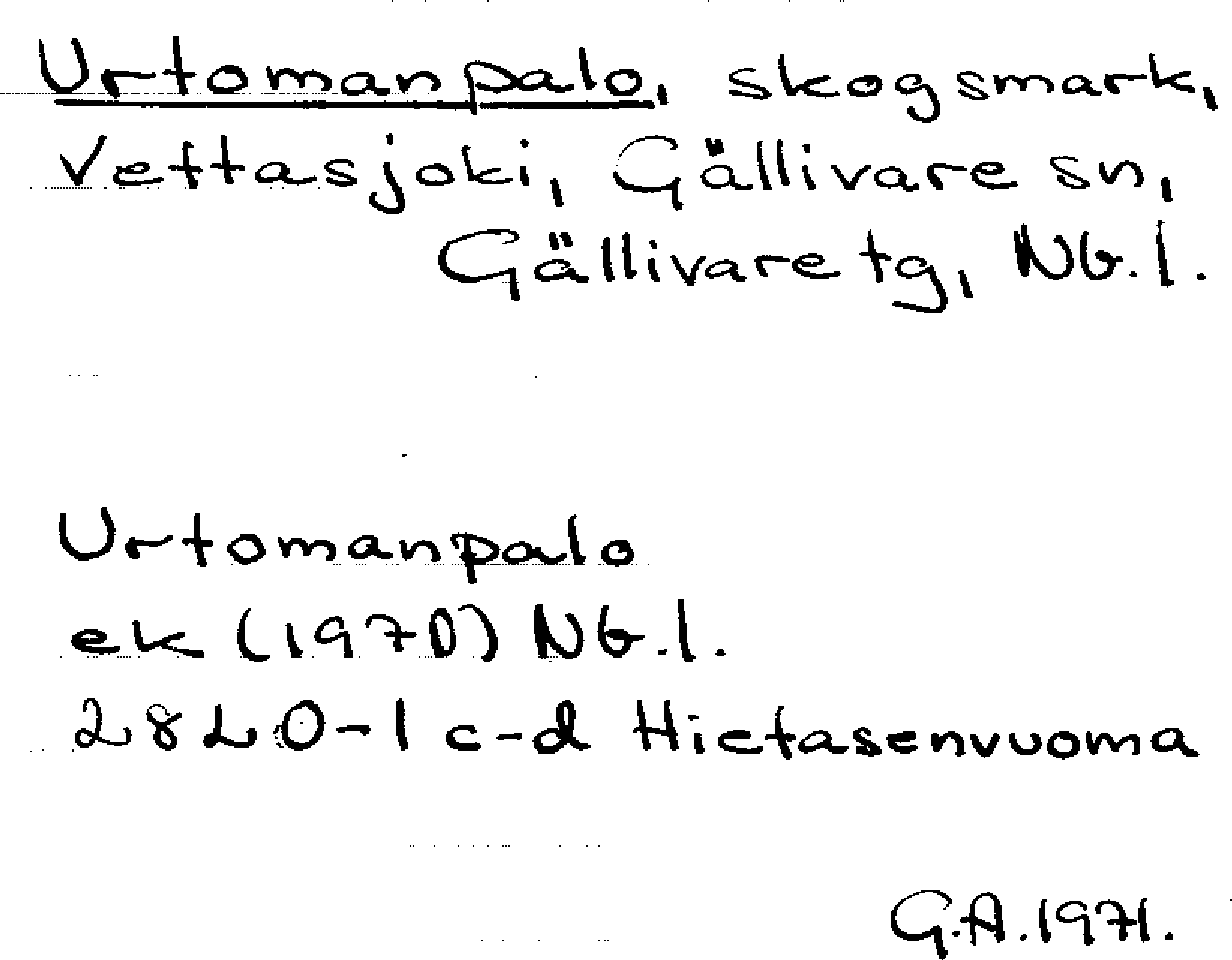 Urtomanpalo, skogsmark,
Vettasjoki, Gällivare sn,
Gällivare tg, Nb.l.
Urtomanpalo
ek (1970) Nb.l.
28L 0-1 c-d Hietasenvuoma
G.A. 1971.